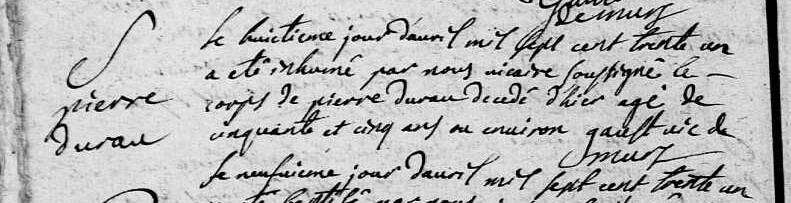 de murs
S
pierre
durau
le huictieme jour dauril mil sept cent trente un
a eté inhumé par nous vicaire soussigné le
corps de pierre durau decedé d'hier agé de
cinquante et cinq ans ou environ gault vic de
murs
le neufuieme jour dauril mil sept cent trente un
par nous